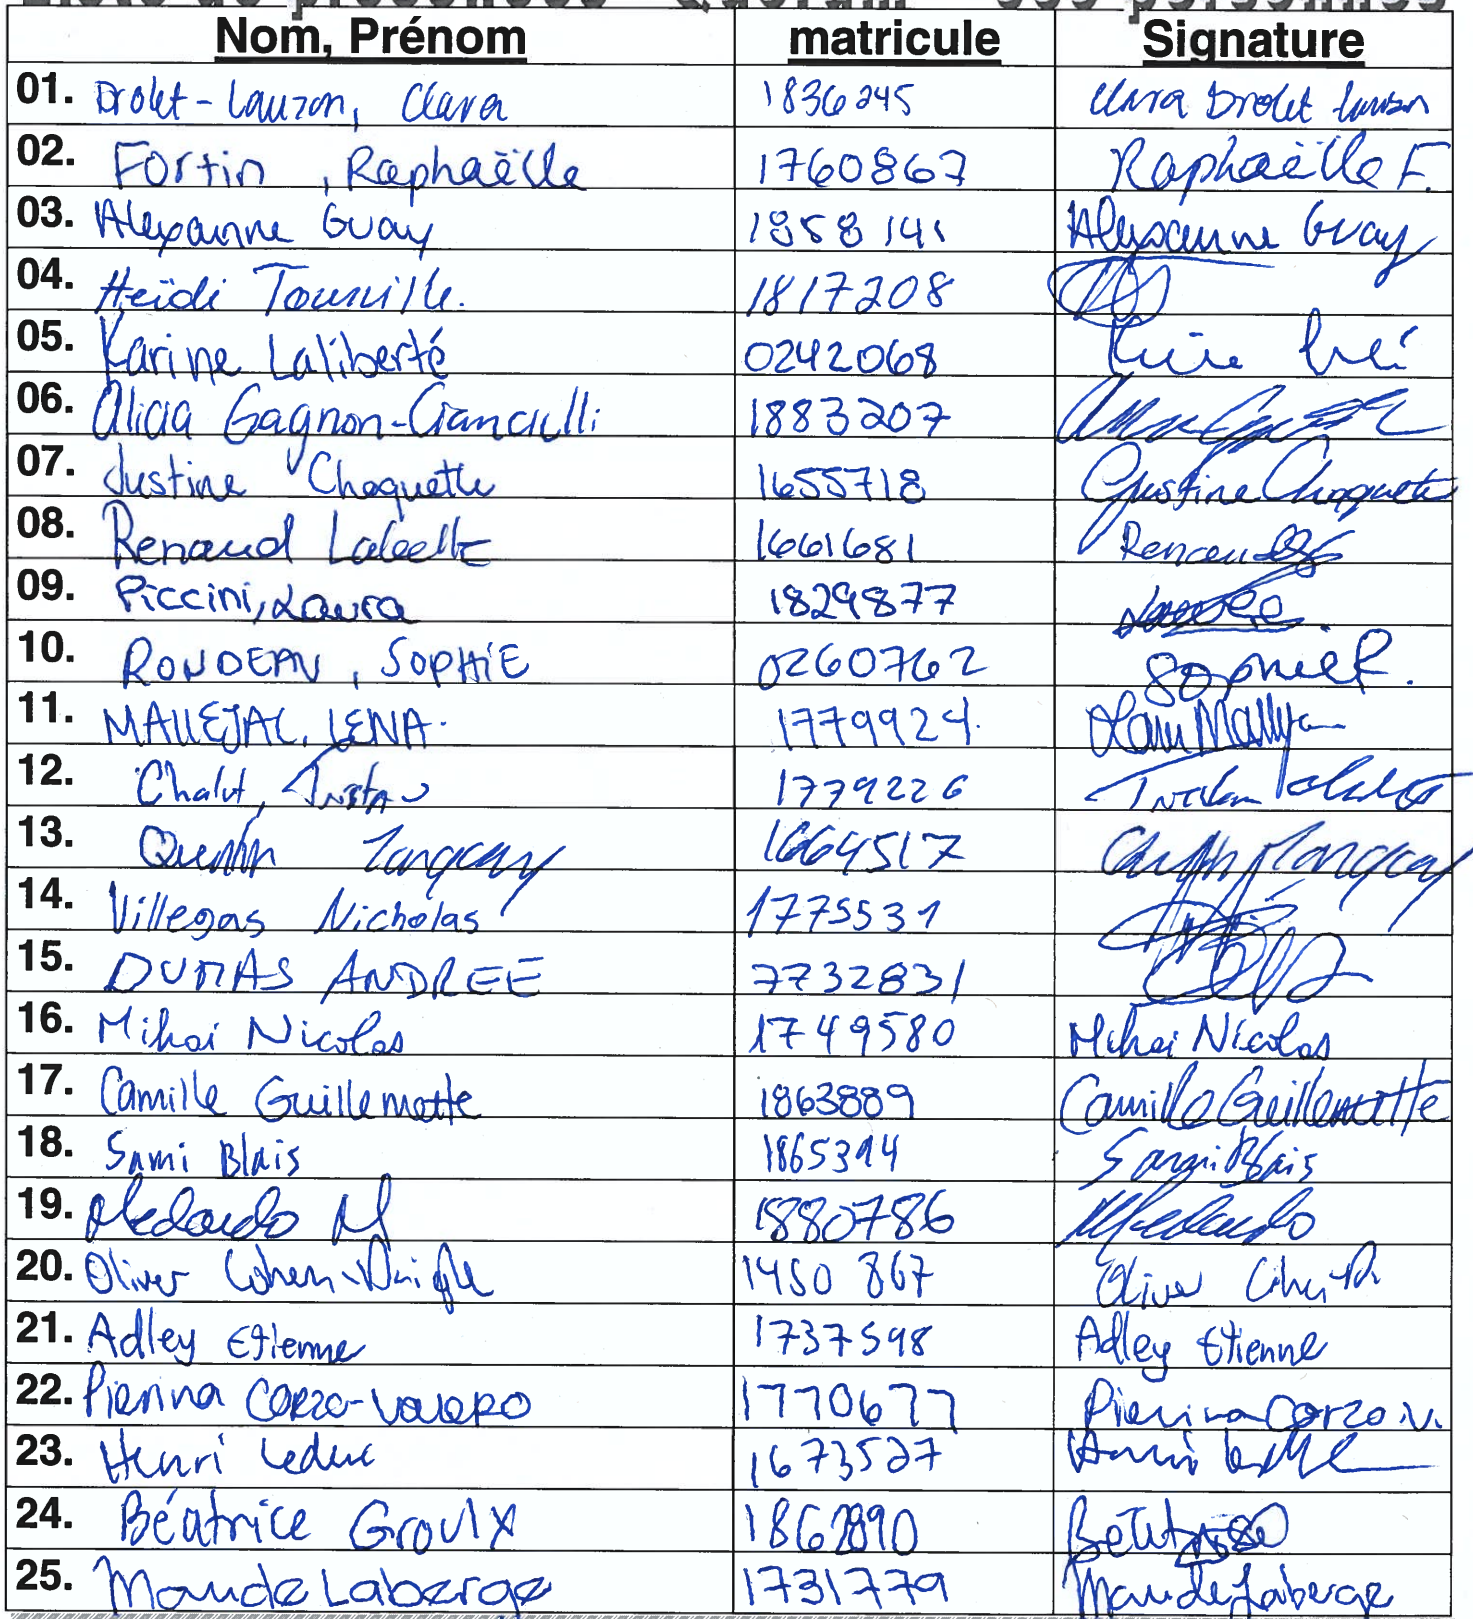 Nom, Prénom matricule Signature
01. Drolet-Lauzon, Clara 1836245 Clara Drolet Lauzon
02. Fortin, Raphaëlle 1760867 Raphaëlle F.
03. Alexanne Guay 1858141 Alexanne Guay
04. Heïdi Tourville. 1817208
05. Karine Laliberté 0242068
06. Alicia Gagnon-Cianciulli 1883207
07. Justine Choquette 1655718 Justine Choquette
08. Renaud Labelle 1661681 Renaud
09. Piccini, Laura 1829877
10. RONDEAU, SOPHIE 0260762 Sophie R.
11. MALLEJAC, LENA. 1779924.
12. Chalut, Tristan 1779226 Tristan Chalut
13. Quentin Tanguay 1664517 Quentin Tanguay
14. Villegas Nicholas 1775531
15. DUMAS ANDREE 7732831
16. Mihai Nicolas 1749580 Mihai Nicolas
17. Camille Guillemette 1863889 Camille Guillemette
18. Sami Blais 1865394 Sami Blais
19. Medardo M 1880786 Medardo
20. Oliver Cohen-Daigle 1450 867 Oliver
21. Adley Etienne 1737598 Adley Etienne
22. Pierina CORZO-VALERO 1770677 Pierina Corzo V.
23. Henri Leduc 1673527 Henri
24. Béatrice Groulx 1862890
25. Maude Laberge 1731779 Maude Laberge